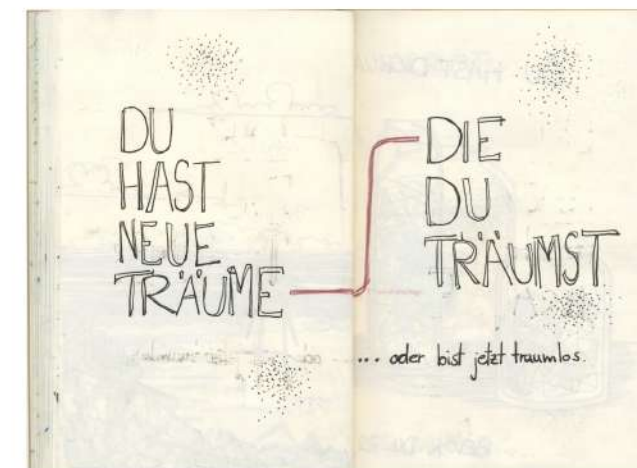 DU
HAST
NEUE
TRÄUME
DIE
DU
TRÄUMST
... oder bist jetzt traumlos.